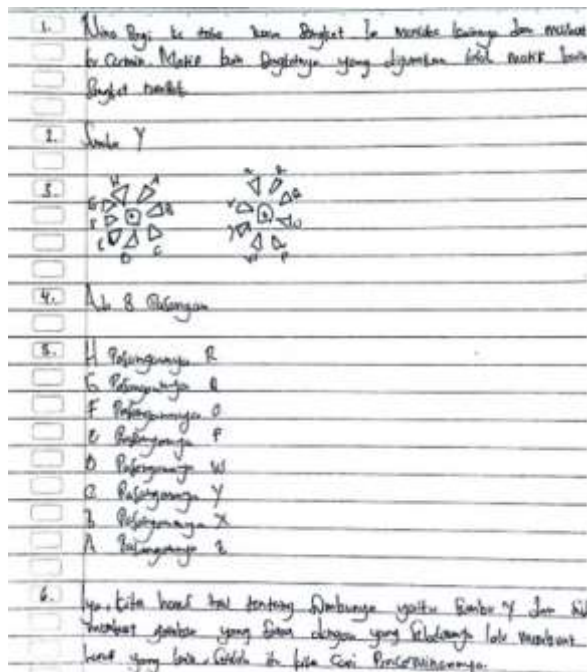 1. Nina Pergi ke toko kain Songket Ia membeli kainnya dan melihat
ke Cermin. Motif kain Songketnya yang digunakan ialah motif kain
Songket
2. Sumbu Y
3. H A
G B
F
E C
D
4. Ada 8 Pasangan
5. H Pasangannya R
G Pasangannya Q
F Pasangannya O
E Pasangannya P
D Pasangannya W
C Pasangannya Y
B Pasangannya X
A Pasangannya Z
6. Iya, kita harus tau tentang Sumbunya yaitu Sumbu Y dan
membuat gambar yang Sama dengan yang Sebelumnya lalu membuat
huruf yang lain. itu kita Cari Pencerminannya.